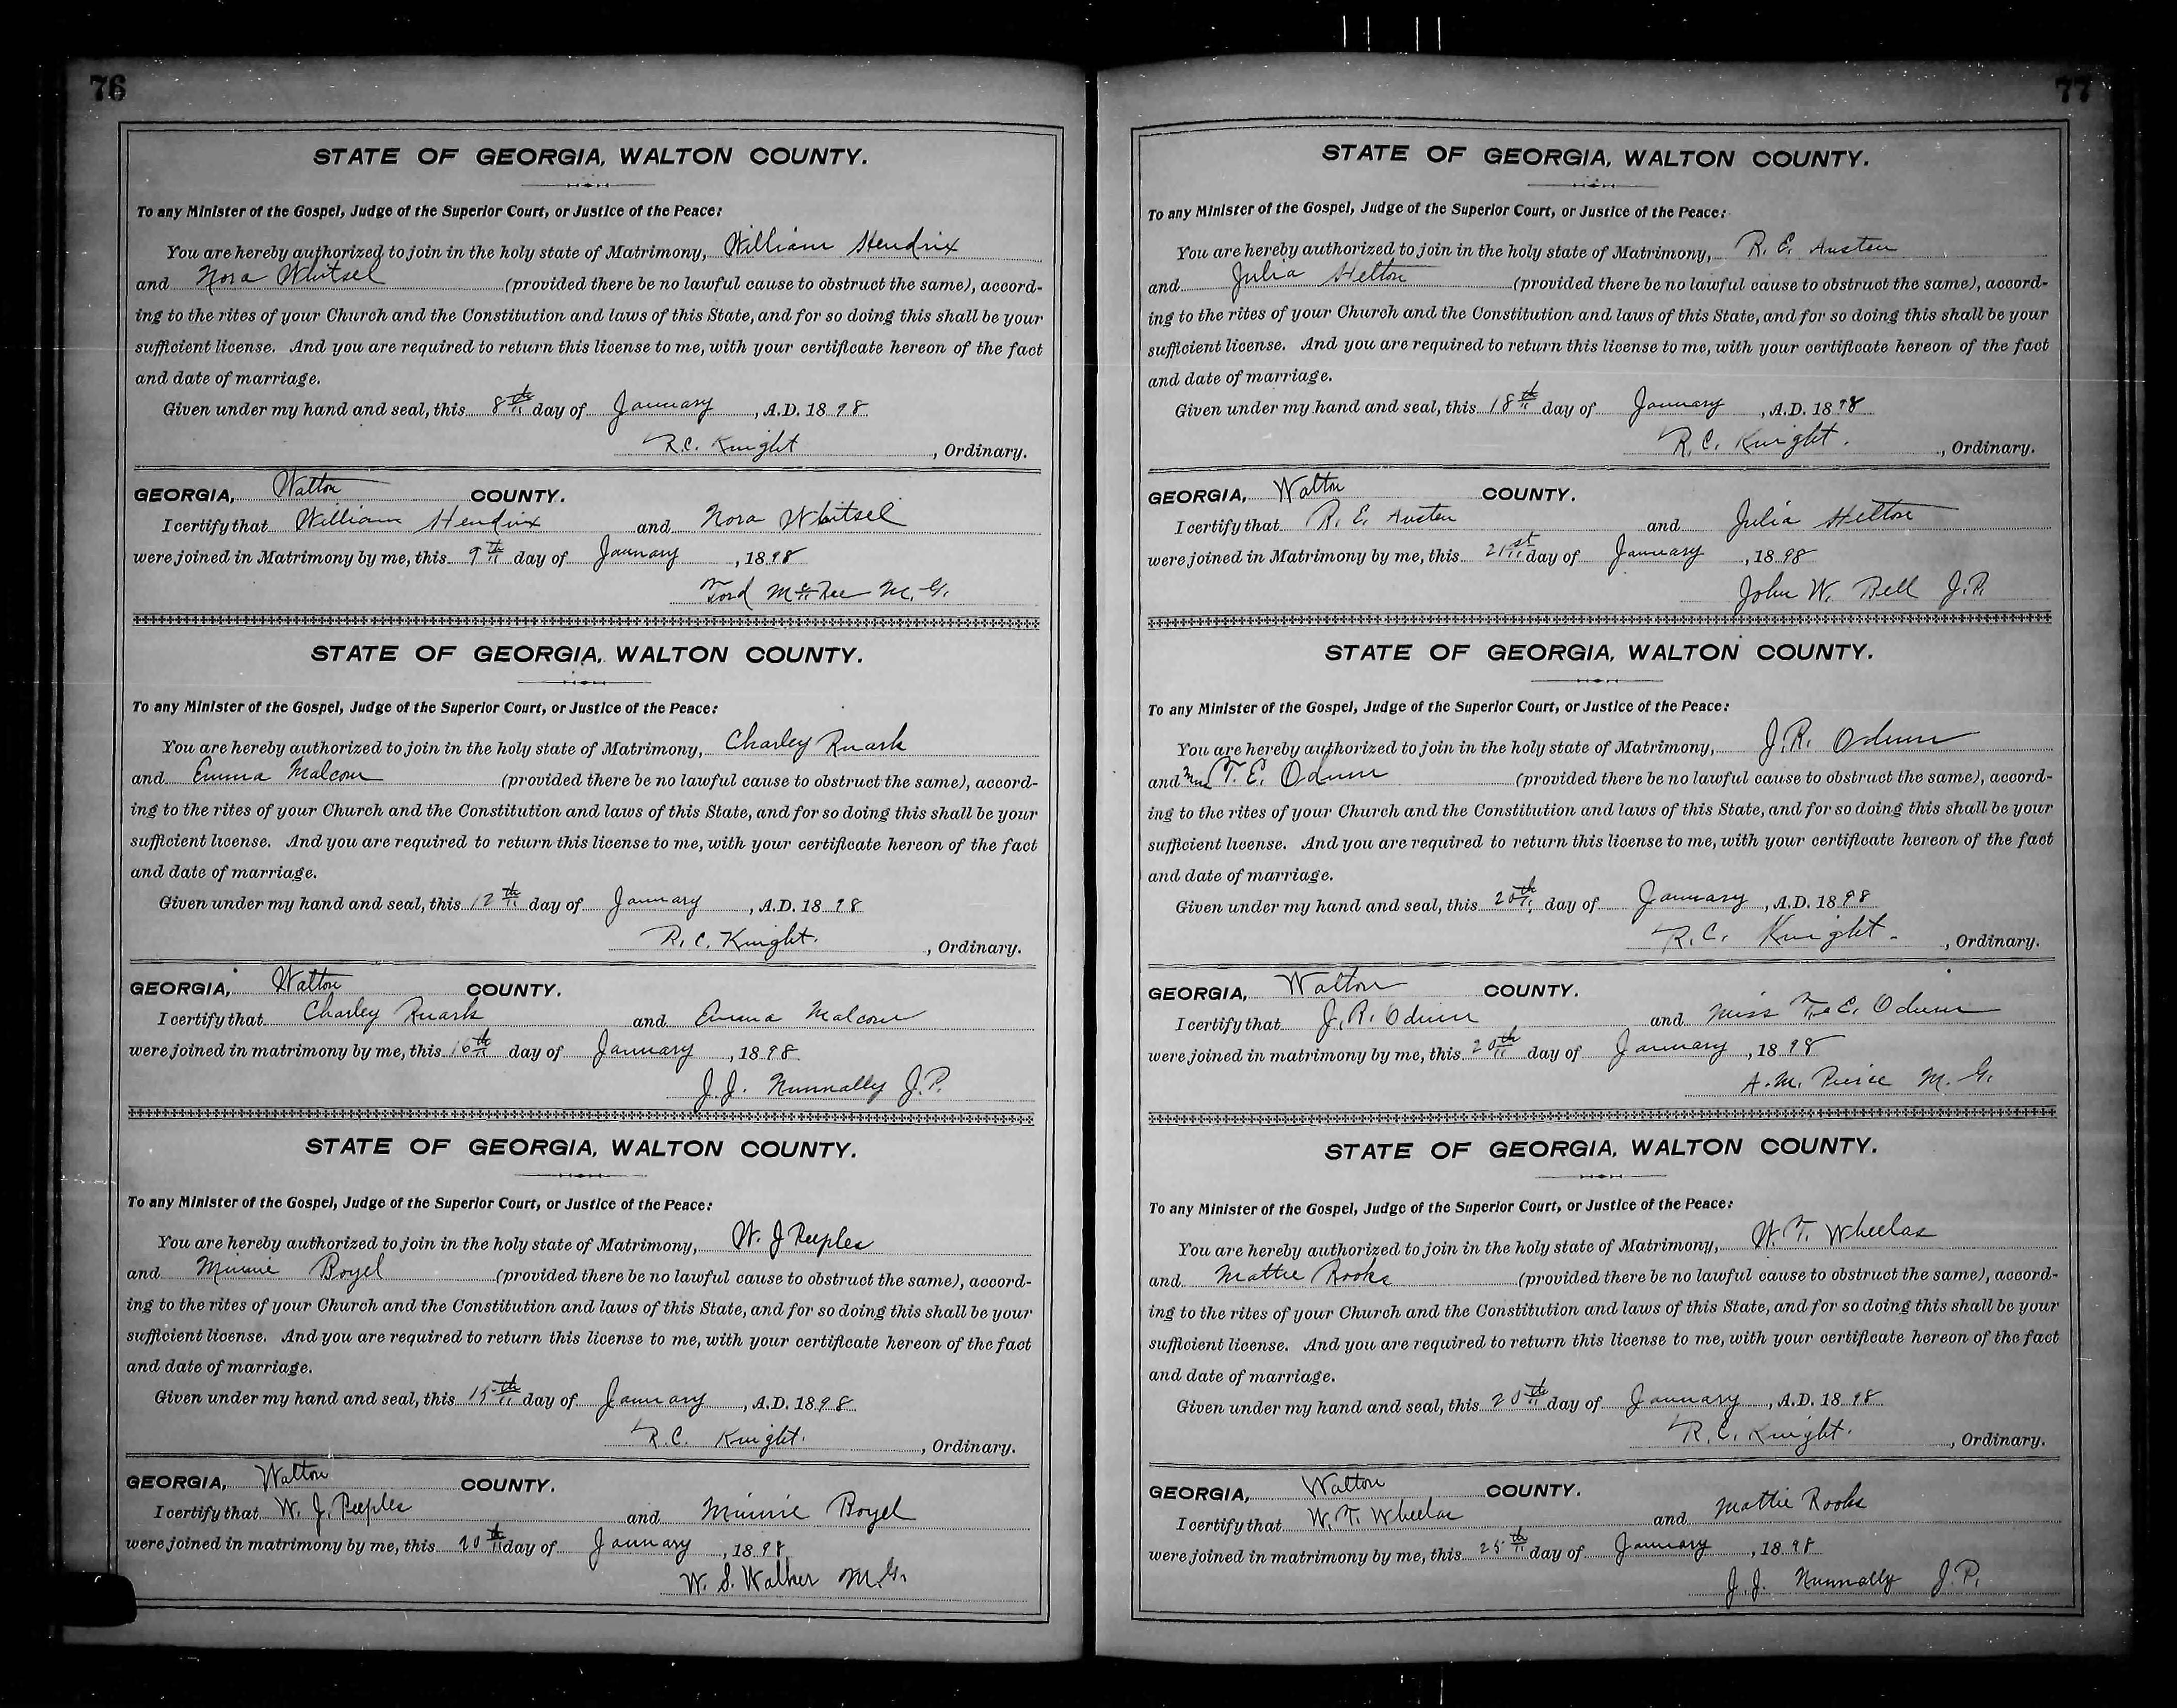 76
STATE OF GEORGIA, WALTON COUNTY.
To any Minister of the Gospel, Judge of the Superior Court, or Justice of the Peace:
You are hereby authorized to join in the holy state of Matrimony, William Hendrix
and Nora Whitsel (provided there be no lawful cause to obstruct the same), accord-
ing to the rites of your Church and the Constitution and laws of this State, and for so doing this shall be your
sufficient license. And you are required to return this license to me, with your certificate hereon of the fact
and date of marriage.
Given under my hand and seal, this 8th day of January, A.D. 1898
R.C. Knight, Ordinary.
GEORGIA, Walton COUNTY.
I certify that William Hendrix and Nora Whitsel
were joined in Matrimony by me, this 9th day of January, 1898
Ford McRee M.G.
STATE OF GEORGIA, WALTON COUNTY.
To any Minister of the Gospel, Judge of the Superior Court, or Justice of the Peace:
You are hereby authorized to join in the holy state of Matrimony, Charley Ruark
and Emma Malcom (provided there be no lawful cause to obstruct the same), accord-
ing to the rites of your Church and the Constitution and laws of this State, and for so doing this shall be your
sufficient license. And you are required to return this license to me, with your certificate hereon of the fact
and date of marriage.
Given under my hand and seal, this 12th day of January, A.D. 1898
R.C. Knight., Ordinary.
GEORGIA, Walton COUNTY.
I certify that Charley Ruark and Emma Malcom
were joined in matrimony by me, this 16th day of January, 1898
J.J. Nunnally J.P.
STATE OF GEORGIA, WALTON COUNTY.
To any Minister of the Gospel, Judge of the Superior Court, or Justice of the Peace:
You are hereby authorized to join in the holy state of Matrimony, W. J Peeples
and Minnie Boyel (provided there be no lawful cause to obstruct the same), accord-
ing to the rites of your Church and the Constitution and laws of this State, and for so doing this shall be your
sufficient license. And you are required to return this license to me, with your certificate hereon of the fact
and date of marriage.
Given under my hand and seal, this 15th day of January, A.D. 1898
R.C. Knight., Ordinary.
GEORGIA, Walton COUNTY.
I certify that W. J. Peeples and Minnie Boyel
were joined in matrimony by me, this 20th day of January, 1898
W. S. Walker M.G.
77
STATE OF GEORGIA, WALTON COUNTY.
To any Minister of the Gospel, Judge of the Superior Court, or Justice of the Peace:
You are hereby authorized to join in the holy state of Matrimony, R. E. Austen
and Julia Helton (provided there be no lawful cause to obstruct the same), accord-
ing to the rites of your Church and the Constitution and laws of this State, and for so doing this shall be your
sufficient license. And you are required to return this license to me, with your certificate hereon of the fact
and date of marriage.
Given under my hand and seal, this 18th day of January, A.D. 1898
R.C. Knight., Ordinary.
GEORGIA, Walton COUNTY.
I certify that R. E. Austen and Julia Helton
were joined in Matrimony by me, this 21st day of January, 1898
John W. Bell J.P.
STATE OF GEORGIA, WALTON COUNTY.
To any Minister of the Gospel, Judge of the Superior Court, or Justice of the Peace:
You are hereby authorized to join in the holy state of Matrimony, J.R. Odum
and T. E. Odum (provided there be no lawful cause to obstruct the same), accord-
ing to the rites of your Church and the Constitution and laws of this State, and for so doing this shall be your
sufficient license. And you are required to return this license to me, with your certificate hereon of the fact
and date of marriage.
Given under my hand and seal, this 20th day of January, A.D. 1898
R.C. Knight., Ordinary.
GEORGIA, Walton COUNTY.
I certify that J.R. Odum and Miss T. E. Odum
were joined in matrimony by me, this 20th day of January, 1898
A.M. Pierce M.G.
STATE OF GEORGIA, WALTON COUNTY.
To any Minister of the Gospel, Judge of the Superior Court, or Justice of the Peace:
You are hereby authorized to join in the holy state of Matrimony, W. T. Wheelas
and Mattie Rooks (provided there be no lawful cause to obstruct the same), accord-
ing to the rites of your Church and the Constitution and laws of this State, and for so doing this shall be your
sufficient license. And you are required to return this license to me, with your certificate hereon of the fact
and date of marriage.
Given under my hand and seal, this 20th day of January, A.D. 1898
R.C. Knight., Ordinary.
GEORGIA, Walton COUNTY.
I certify that W. T. Wheelas and Mattie Rooks
were joined in matrimony by me, this 25th day of January, 1898
J.J. Nunnally J.P.